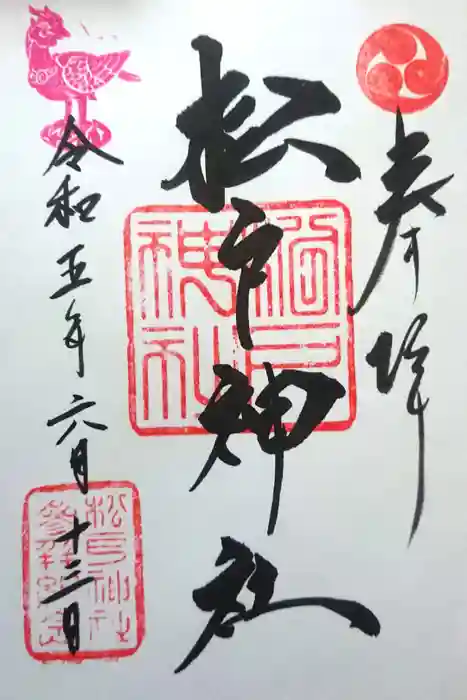 奉拝
松戸神社
令和五年六月十三日
松戸神社
参拝記念